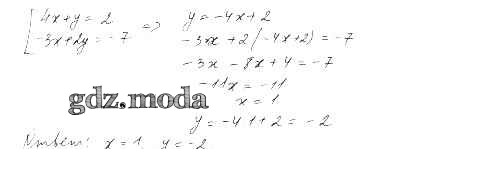 4x+y=2 => y=-4x+2
-3x+2y=-7 -3x+2(-4x+2)=-7
-3x-8x+4=-7
-11x=-11
gdz.moda
x=1.
y=-4·1+2=-2
Ответ: x=1. y=-2.